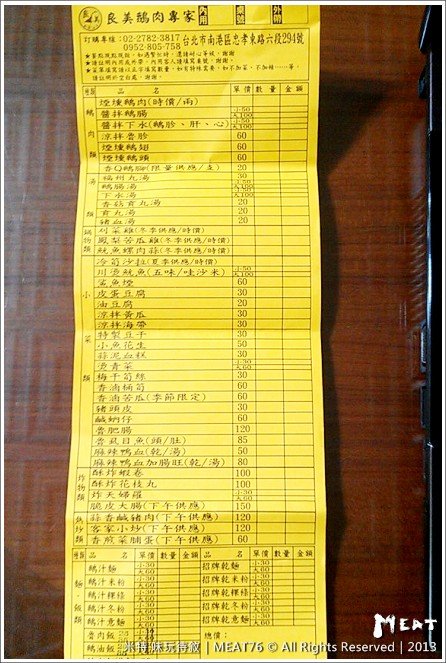 良美鵝肉專家 內用 桌號 外帶
訂購專線：02-2782-3817
0952-805-758
台北市南港區忠孝東路六段294號
類別 單價 數量 金額
鵝肉類
煙燻鵝肉(時價/兩)
醬拌鵝腸 小50 大100
醬拌下水(鵝胗、肝、心) 小50 大100
涼拌魯胗 60
煙燻鵝翅 60
煙燻鵝頭 60
香Q鵝腳(限量供應/支) 20
湯類
福州丸湯 30
鵝腸湯 小50 大100
下水湯 小50 大100
香菇貢丸湯 20
貢丸湯 20
豬血湯 20
鍋物類
刈菜雞(冬季供應/時價)
鳳梨苦瓜雞(冬季供應/時價)
魷魚螺肉蒜(冬季供應/時價)
小菜類
冷筍沙拉(夏季供應/時價)
川燙魷魚(五味/哇沙米) 小50 大100
鯊魚煙 60
皮蛋豆腐 30
油豆腐 20
涼拌黃瓜 30
涼拌海帶 30
特製豆干 30
小魚花生 50
蒜泥血糕 30
燙青菜 小30 大50
梅干筍絲 30
香滷桶筍 60
香滷苦瓜(季節限定) 60
豬頭皮 30
鹹蜆仔 60
魯肥腸 120
魯虱目魚(頭/肚) 85
麻辣鴨血(乾/湯) 50
麻辣鴨血加腸旺(乾/湯) 80
炸物類
酥炸蝦卷 100
酥炸花枝丸 100
炸天婦羅 50
脆皮大腸(下午供應) 150
熱炒類
蒜香鹹豬肉(下午供應) 120
客家小炒(下午供應) 120
香煎菜脯蛋(下午供應) 60
品名 單價 數量 金額 品名 單價 數量 金額
麵・飯類
鵝汁麵 小30 大60 招牌乾麵 小30 大60
鵝汁米粉 小30 大60 招牌乾米粉 小30 大60
鵝汁粿條 小30 大60 招牌乾粿條 小30 大60
鵝汁冬粉 小30 大60 招牌乾冬粉 小30 大60
鵝汁意麵 小30 大60 招牌乾意麵 小30 大60
魯肉飯 總價：
鵝油飯
米特!味玩待敘 | MEAT76 © All Rights Reserved | 2013
MEAT